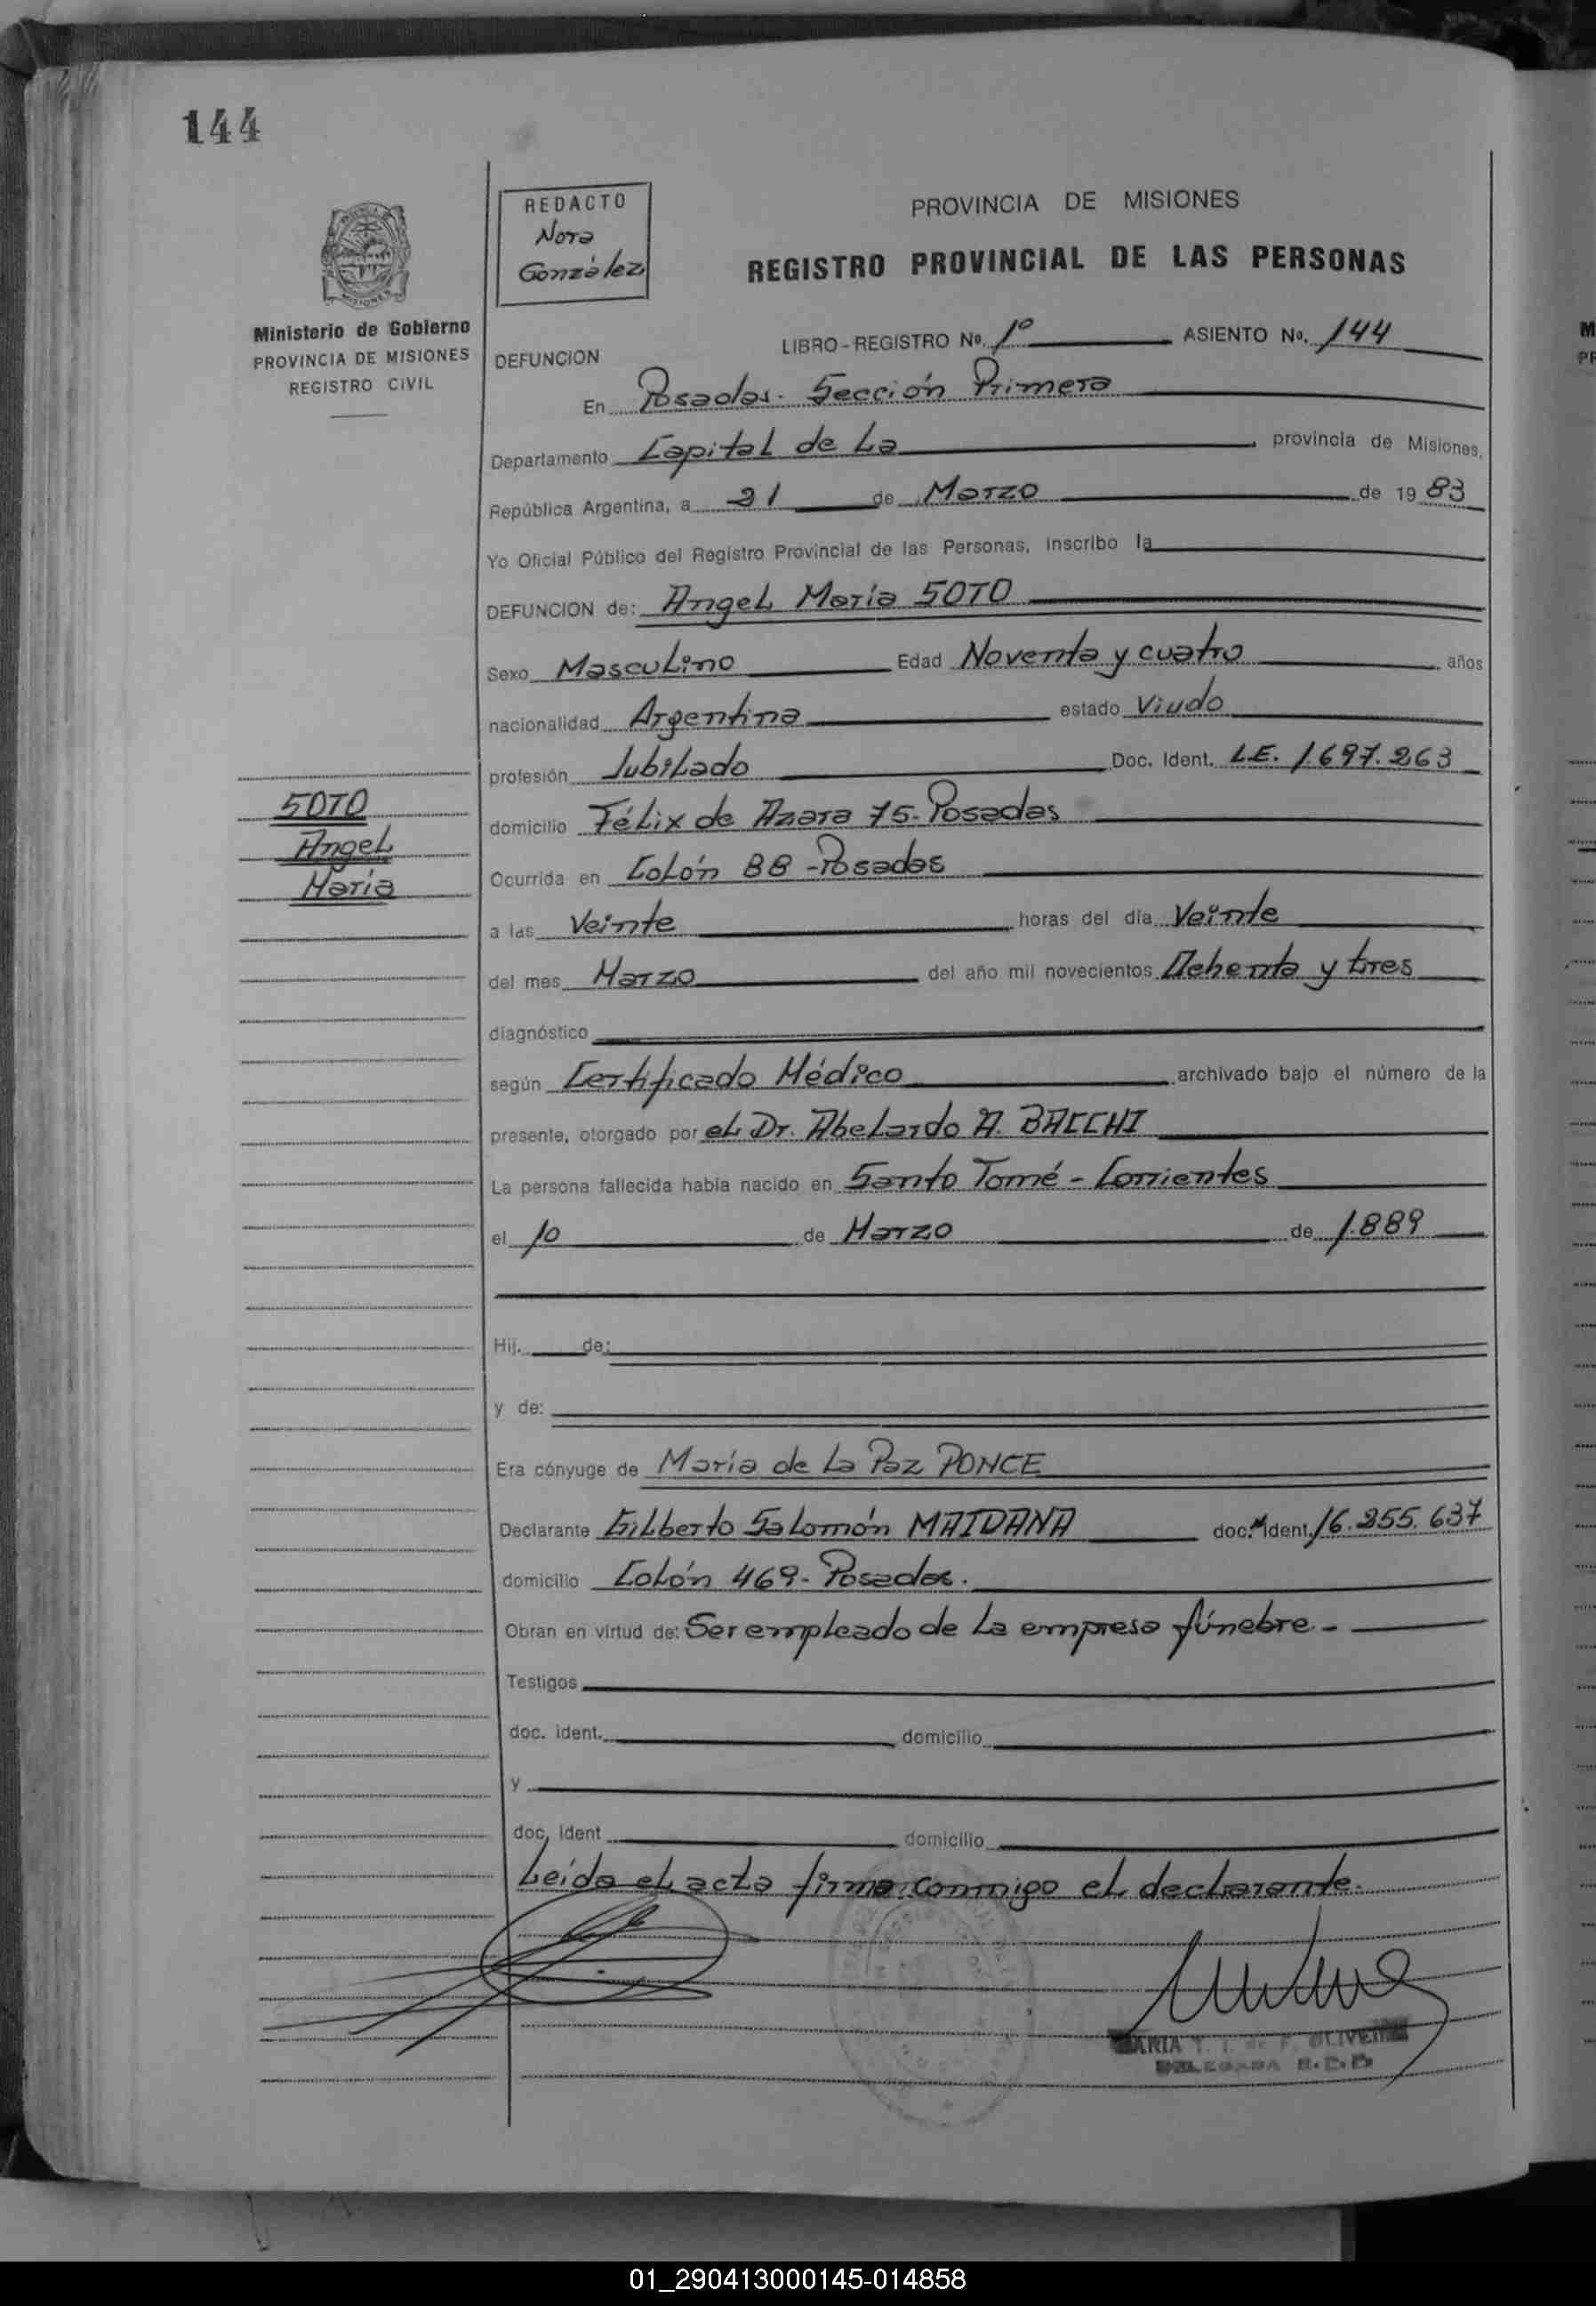 144
REDACTO
Nora
González
PROVINCIA DE MISIONES
REGISTRO PROVINCIAL DE LAS PERSONAS
Ministerio de Gobierno
PROVINCIA DE MISIONES
REGISTRO CIVIL
LIBRO-REGISTRO No. 1º ASIENTO No. 144
DEFUNCION
En Posadas. Sección Primera
Departamento Capital de La provincia de Misiones,
República Argentina, a 21 de Marzo de 1983
Yo Oficial Público del Registro Provincial de las Personas, inscribo la
DEFUNCION de: Angel María SOTO
Sexo Masculino Edad Noventa y cuatro años
nacionalidad Argentina estado Viudo
profesión Jubilado Doc. Ident. L.E. 1.697.263
SOTO
Angel
María
domicilio Félix de Azara 75- Posadas
Ocurrida en Colón 88 -Posadas
a las Veinte horas del día Veinte
del mes Marzo del año mil novecientos Ochenta y tres
diagnóstico
según Certificado Médico archivado bajo el número de la
presente, otorgado por el Dr. Abelardo A. BACCHI
La persona fallecida había nacido en Santo Tomé - Corrientes
el 10 de Marzo de 1.889
Hij. de:
y de:
Era cónyuge de María de La Paz PONCE
Declarante Gilberto Salomón MAIDANA doc. ident. 16.255.637
domicilio Colón 469- Posadas.
Obran en virtud de: Ser empleado de la empresa fúnebre.-
Testigos
doc. ident. domicilio
y
doc. ident domicilio
Leída el acta firma conmigo el declarante.
MARIA OLIVEIRA
DELEGADA
01_290413000145-014858